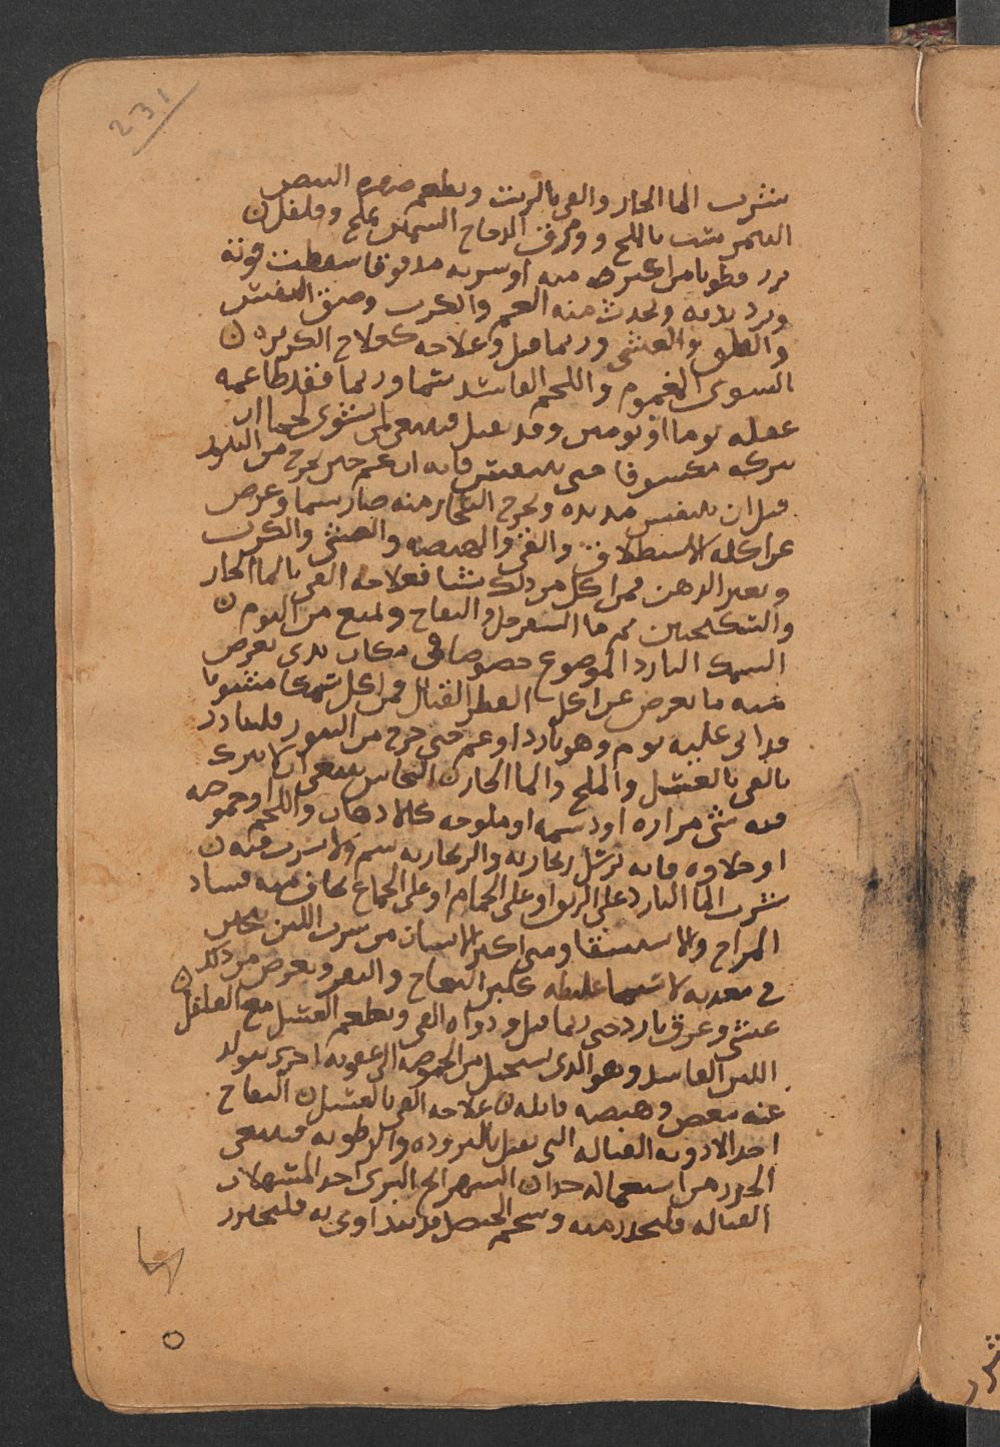 231
بشرب الما الحار والقي بالزيت ويطعم صفرة البيض
النيمرشت بالملح ومرق الدجاج السمين بملح وفلفل ن
بزر قطونا من اكثر منه او سربه مدقوقا سقطت قوته
وبرد بدنه وحدث منه الغم والكرب وضيق النفس
والقلق والغشي وربما قتل وعلاجه كعلاج الكزبره ن
الشوى المغموم واللحم الفاسد سما وربما فقد طاعمه
عقله يوما او يومين وقد يقتل فينبغي لمن شوى لحما ان
يتركه مكشوفا حتى يتنفس فانه ان غم حين يخرج من التنور
قبل ان يتنفس مديده ويخرج البخار منه صار سما وعرض
عن اكله الاستطلاق والقي والهيضه والغشي والكرب
وتغير الذهن فمن اكل من ذلك شيا فعلاجه القي بالما الحار
والسكنجبين ثم ما السفرجل والتفاح ويمنع من النوم ن
السمك البارد الموضوع خصوصا في مكان ندى يعرض
منه ما يعرض عن اكل الفطر القتال فمن اكل سمكا مشويا
قد اتى عليه يوم وهو بارد او غم حتى خرج من التنور فليبادر
بالقي بالعسل والملح والما الحار ن النحاس ينبغي ان لا يترك
فيه شي مراره او دسمه او ملوحه كالادهان واللحم او حموضه
او حلاوه فانه ترسل زنجاريه والزنجاريه سم ولا يشرب فيه ن
شرب الما البارد على الريق او على الحمام او على الجماع يخاف منه فساد
المزاج والاستسقا ومتى اكثر الانسان من شرب اللبن تجبن
في معدته لا سيما غليظه كلبن النعاج والبقر ويعرض من ذلك
غشي وعرق بارد حتى ربما قتل ودواه القي ويطعم العسل مع الفلفل ن
اللبن الفاسد وهو الذي يستحيل من الحموضه الى عفونه اخرى يتولد
عنه مغص وهيضه قاتله ن علاجه القي بالعسل ن التفاح
احد الادويه القتاله التي تقتل بالبروده والرطوبه فينبغي
الحذر من استعماله جدا ن السهرالج البرى احد المسهلات
القتاله فليحذر منه وشحم الحنظل قد يتداوى به فليحذر